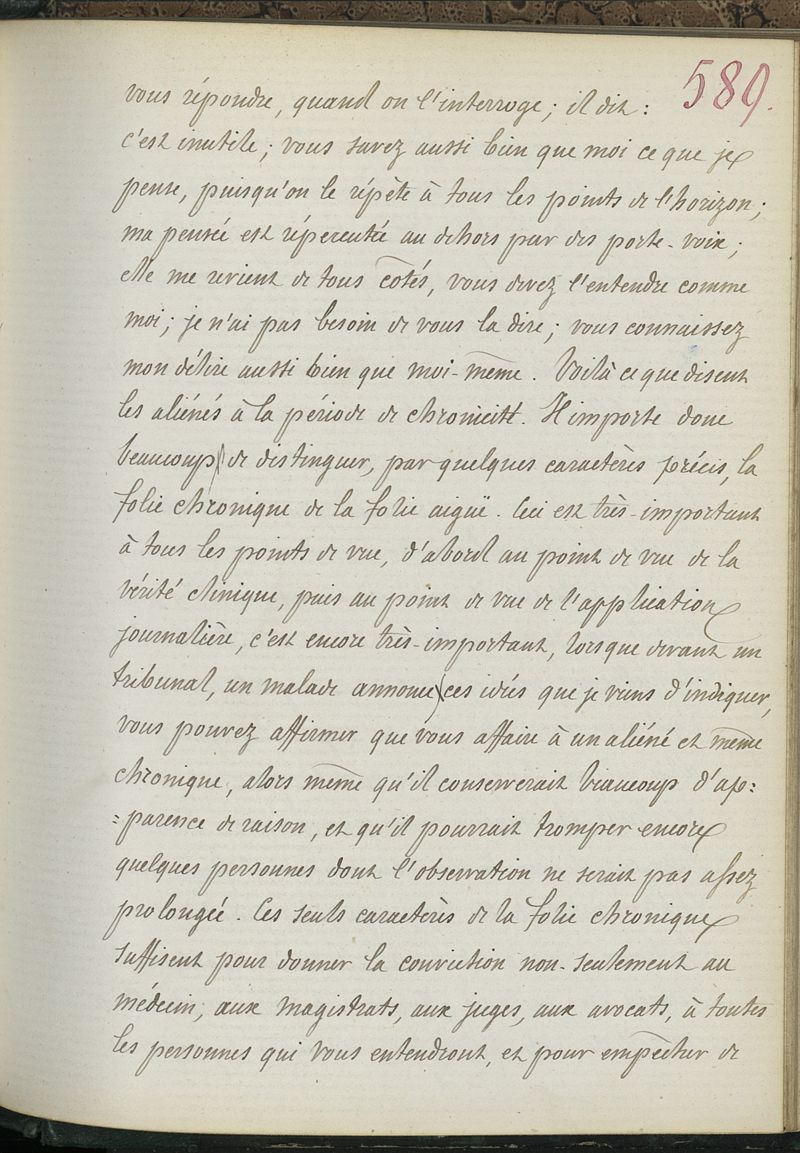 589.
vous répondre, quand on l'interroge; il dit:
c'est inutile; vous savez aussi bien que moi ce que je
pense, puisqu'on le répète à tous les points de l'horizon;
ma pensée est répercutée au dehors par des porte-voix;
elle me revient de tous cotés, vous devez l'entendre comme
moi; je n'ai pas besoin de vous la dire; vous connaissez
mon délire aussi bien que moi-même. Voilà ce que disent
les aliénés à la période de chronicité. Il importe donc
beaucoup de distinguer, par quelques caractères précis, la
folie chronique de la folie aiguë. Ceci est très-important
à tous les points de vue, d'abord au point de vue de la
vérité clinique, puis au point de vue de l'application
journalière, c'est encore très-important, lorsque devant un
tribunal, un malade annonce ces idées que je viens d'indiquer,
vous pouvez affirmer que vous affaire à un aliéné et même
chronique, alors même qu'il conserverait beaucoup d'ap=
=parence de raison, et qu'il pourrait tromper encore
quelques personnes dont l'observation ne serait pas assez
prolongée. Ces seuls caractères de la folie chronique
suffisent pour donner la conviction non-seulement au
médecin, aux magistrats, aux juges, aux avocats, à toutes
les personnes qui vous entendront, et pour empêcher de